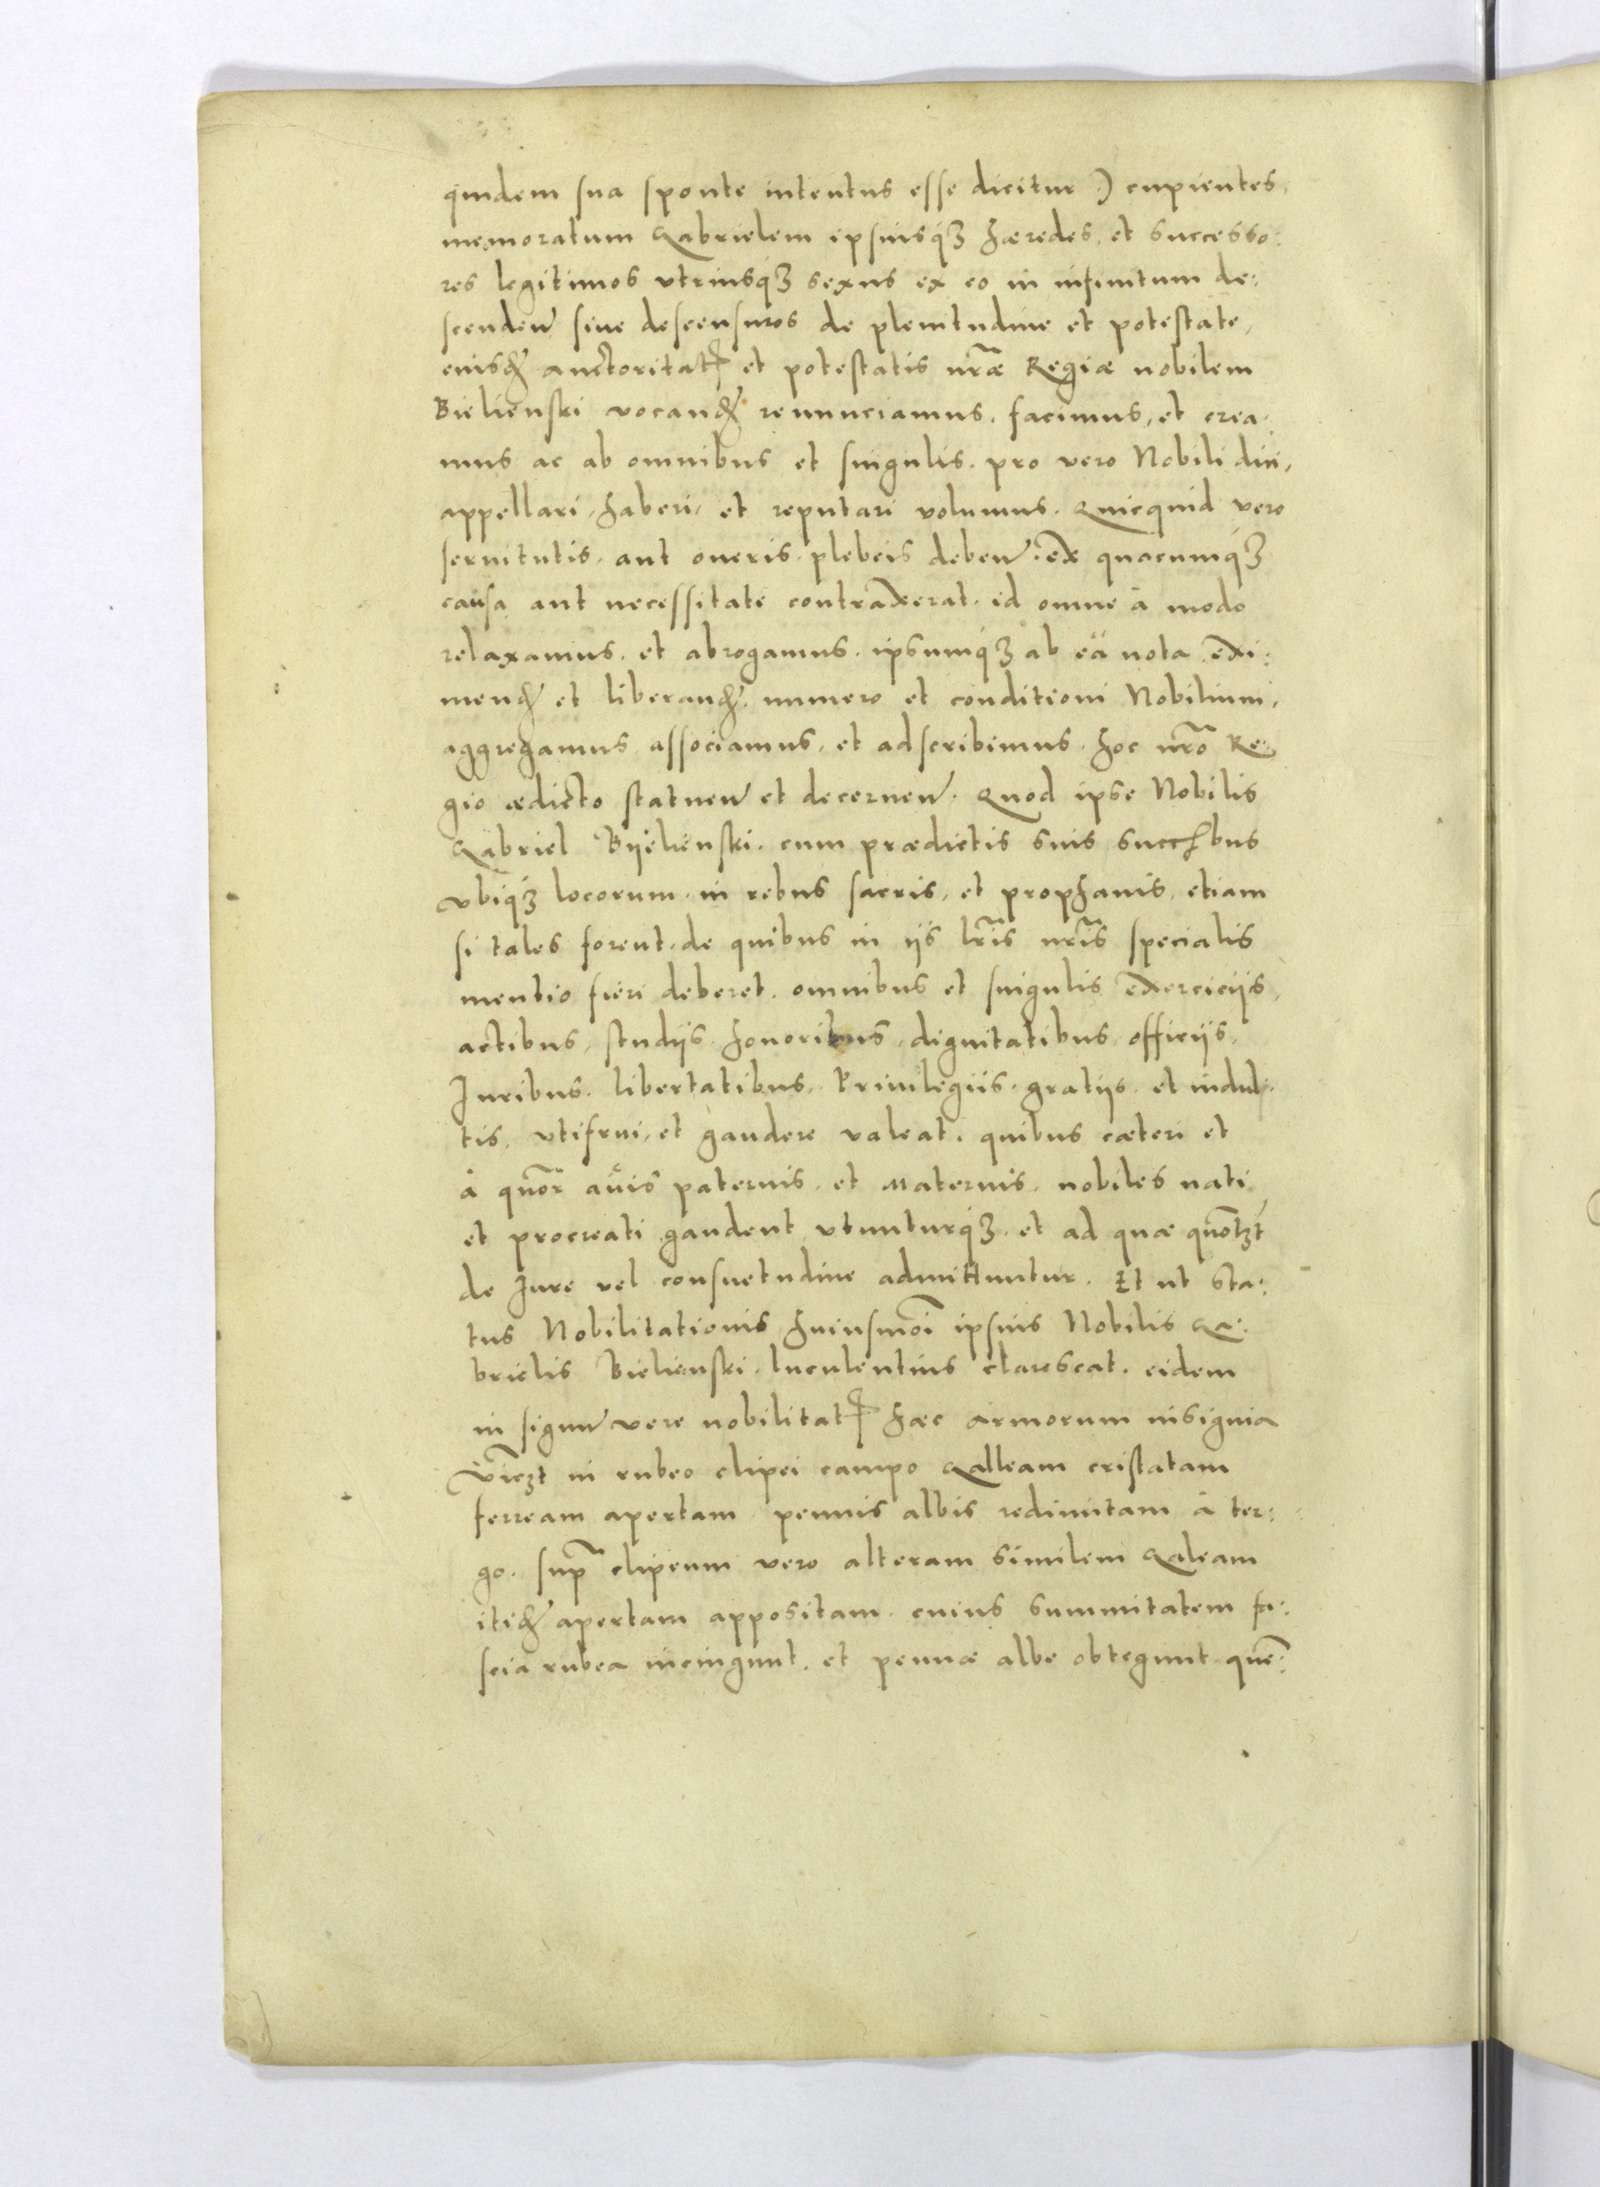 quidem sua sponte intentus esse dicitur.) cupientes,
memoratum Gabrielem ipsiusq́ꝫ hæredes, et successo:
res legitimos vtriusq́ꝫ sexus ex eo in infinitum de:
scenden̄ siue descensuros de plenitudine et potestate,
eiusdē auctoritatꝭ et potestatis nr̃æ Regiæ nobilem
Bielienski vocandē renunciamus, facimus, et crea:
mus ac ab omnibus et singulis, pro vero Nobili dici,
appellari, haberi, et reputari volumus. Quicquid vero
seruitutis, aut oneris, plebeis deben̄, ex quacumq́ꝫ
causa aut necessitate contraxerat, id omne à modo
relaxamus, et abrogamus, ipsumq́ꝫ ab eä nota exi:
mendē et liberandē, numero et conditioni Nobilium,
aggregamus, associamus, et adscribimus, hoc nr̃o Re:
gio ædicto statuen̄ et decernen̄. Quod ipse Nobilis
Gabriel Byelienski, cum prædictis suis succſbus
vbiq́ꝫ locorum, in rebus sacris, et prophanis, etiam
si tales forent, de quibus in ijs lr̃is nr̃is specialis
mentio fieri deberet, omnibus et singulis exerciciis,
actibus, studijs, honoribus, dignitatibus, officijs,
Juribus, libertatibus, Priuilegiis, gratijs, et indul:
tis, vtifrui, et gaudere valeat, quibus cæteri et
à quõr auis paternis, et Maternis, nobiles nati
et procreati gaudent vtunturq́ꝫ, et ad quæ quõlꝫt
de Jure vel consuetudine admittuntur. Et ut sta:
tus Nobilitationis huiusmõi ipsius Nobilis Ga:
brielis Bielienski, luculentius clarescat, eidem
in signum̄ vere nobilitatꝭ hæc armorum insignia
vĩcꝫt in rubeo clipei campo Galleam cristatam
ferream apertam, pennis albis redimitam à ter:
go. sup̃ clipeum vero alteram similem Galeam
itidē apertam appositam, cuius summitatem fa:
scia rubea incingunt, et pennæ albe obtegunt quẽ: